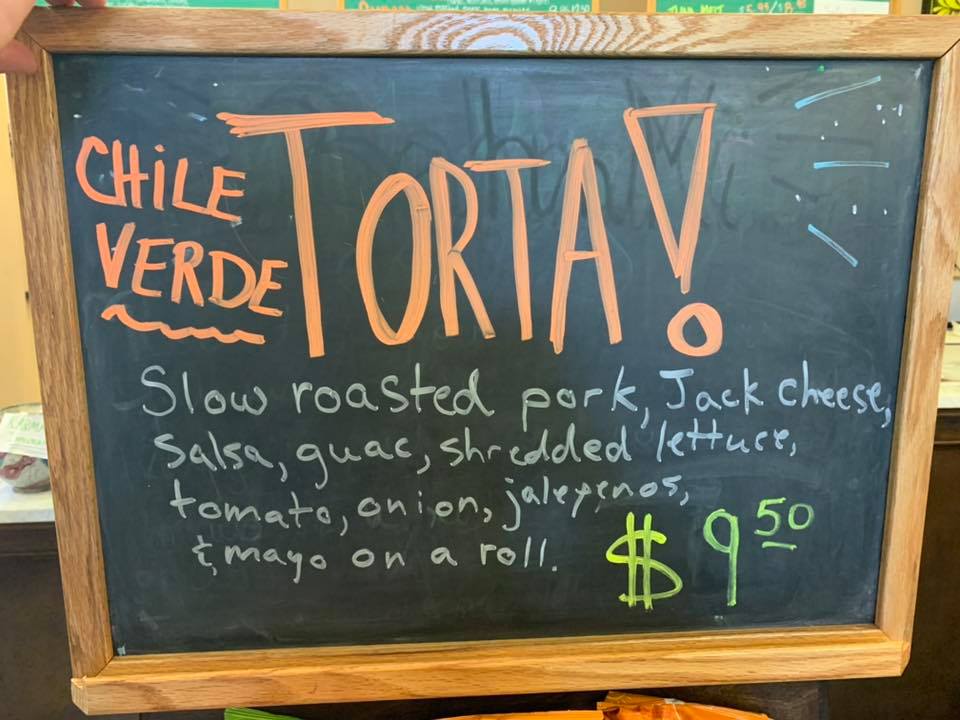 CHiLE
VERDE
TORTA!
Slow roasted pork, Jack cheese,
salsa, guac, shredded lettuce,
tomato, onion, jalepenos,
& mayo on a roll.
$9 50